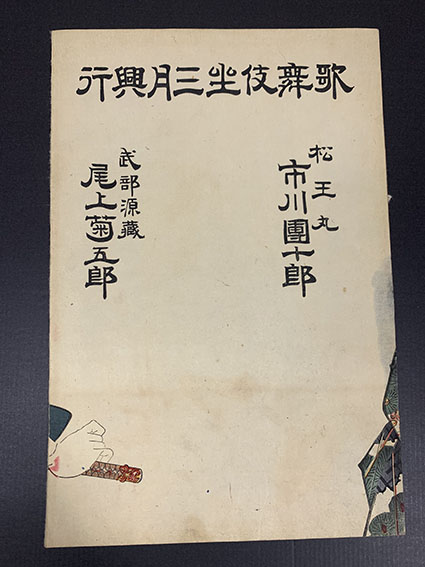 歌舞伎坐三月興行
松王丸
市川團十郎
武部源藏
尾上菊五郎